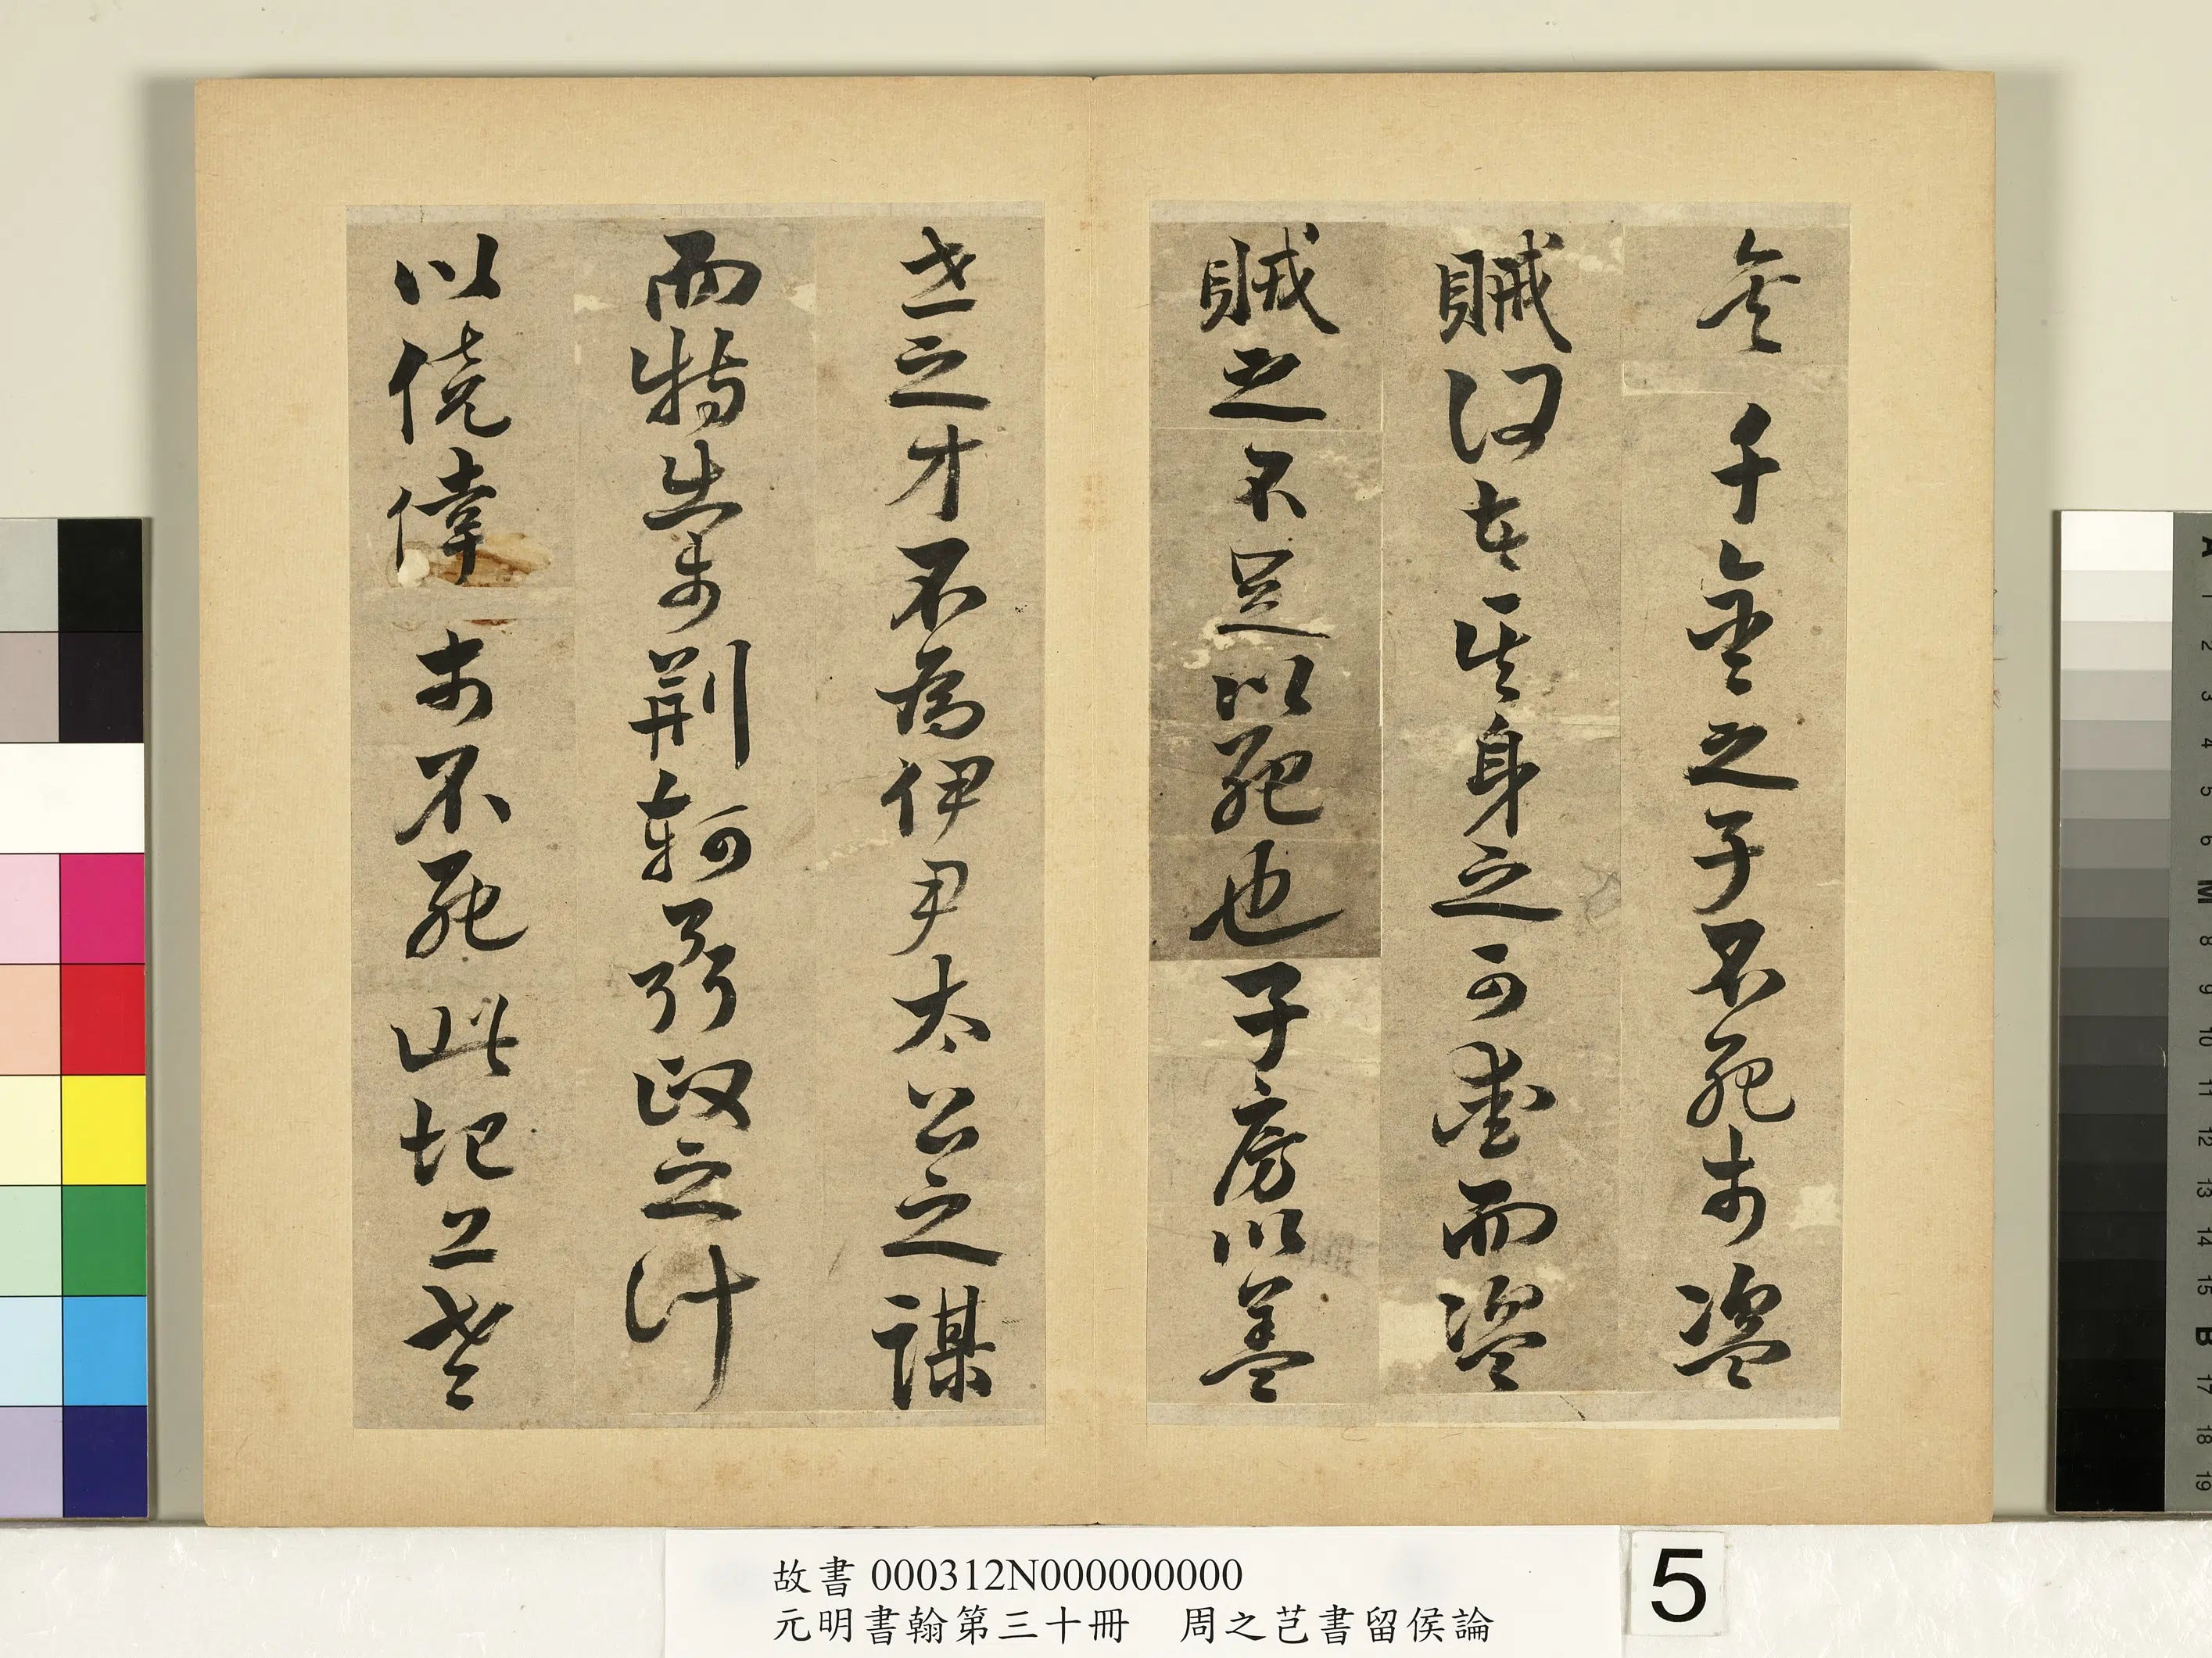 矣千金之子不死於盜
賊何者其身之可愛而盜
賊之不足以死也子房以蓋
世之才不為伊尹太公之謀
而特出於荊軻聶政之計
以僥倖於不死此圯上老
故書 000312N000000000
元明書翰第三十冊 周之芑書留侯論
5
A 1 2 3 4 5 6 M 8 9 10 11 12 13 14 15 B 17 18 19